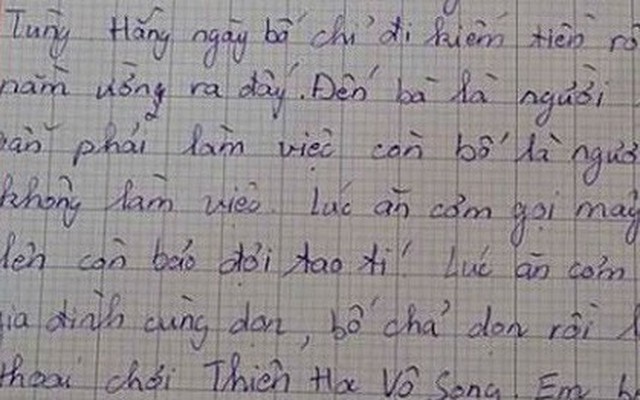 Tưng Hằng ngày bố chỉ đi kiếm tiền rồ
nằm ưỡng ra đấy. Đến bà là người
phải làm việc còn bố là ngườ
không làm việc. Lúc ăn cơm gọi mãy
lên còn báo đợi tao tí! Lúc ăn cơm
gia đình cùng dọn, bố chả dọn rồi l
thoại chơi Thiên Hạ Vô Song. Em